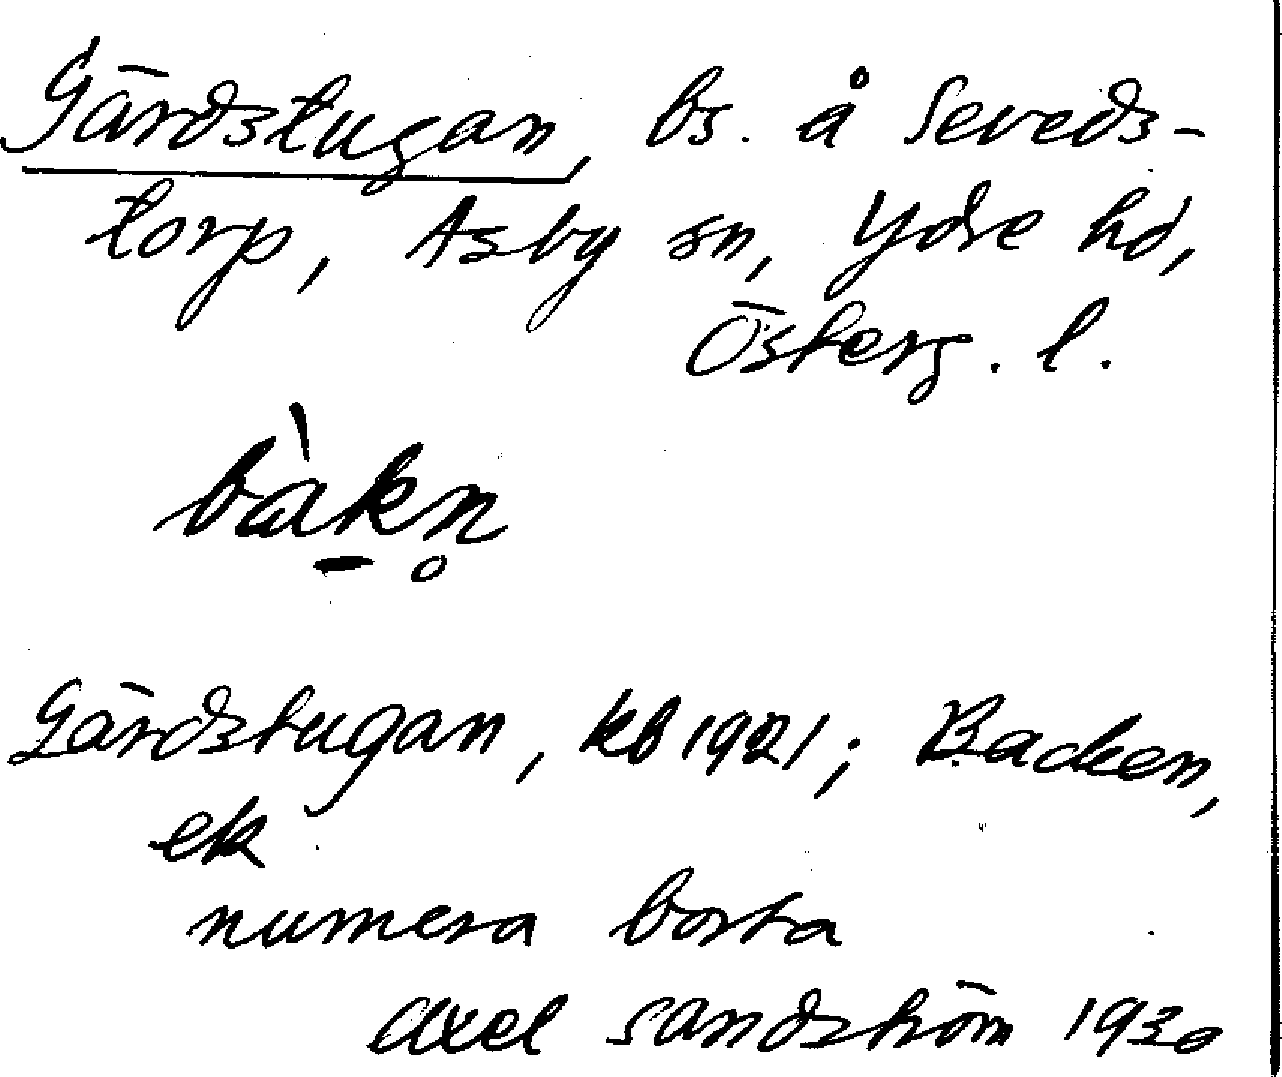 Gärdstugan, bs. å Seveds-
torp, Asby sn, Ydre hd,
Österg. l.
bàkn̥
Gärdstugan, kb 1921; Backen,
ek
numera borta
Axel Sandström 1930